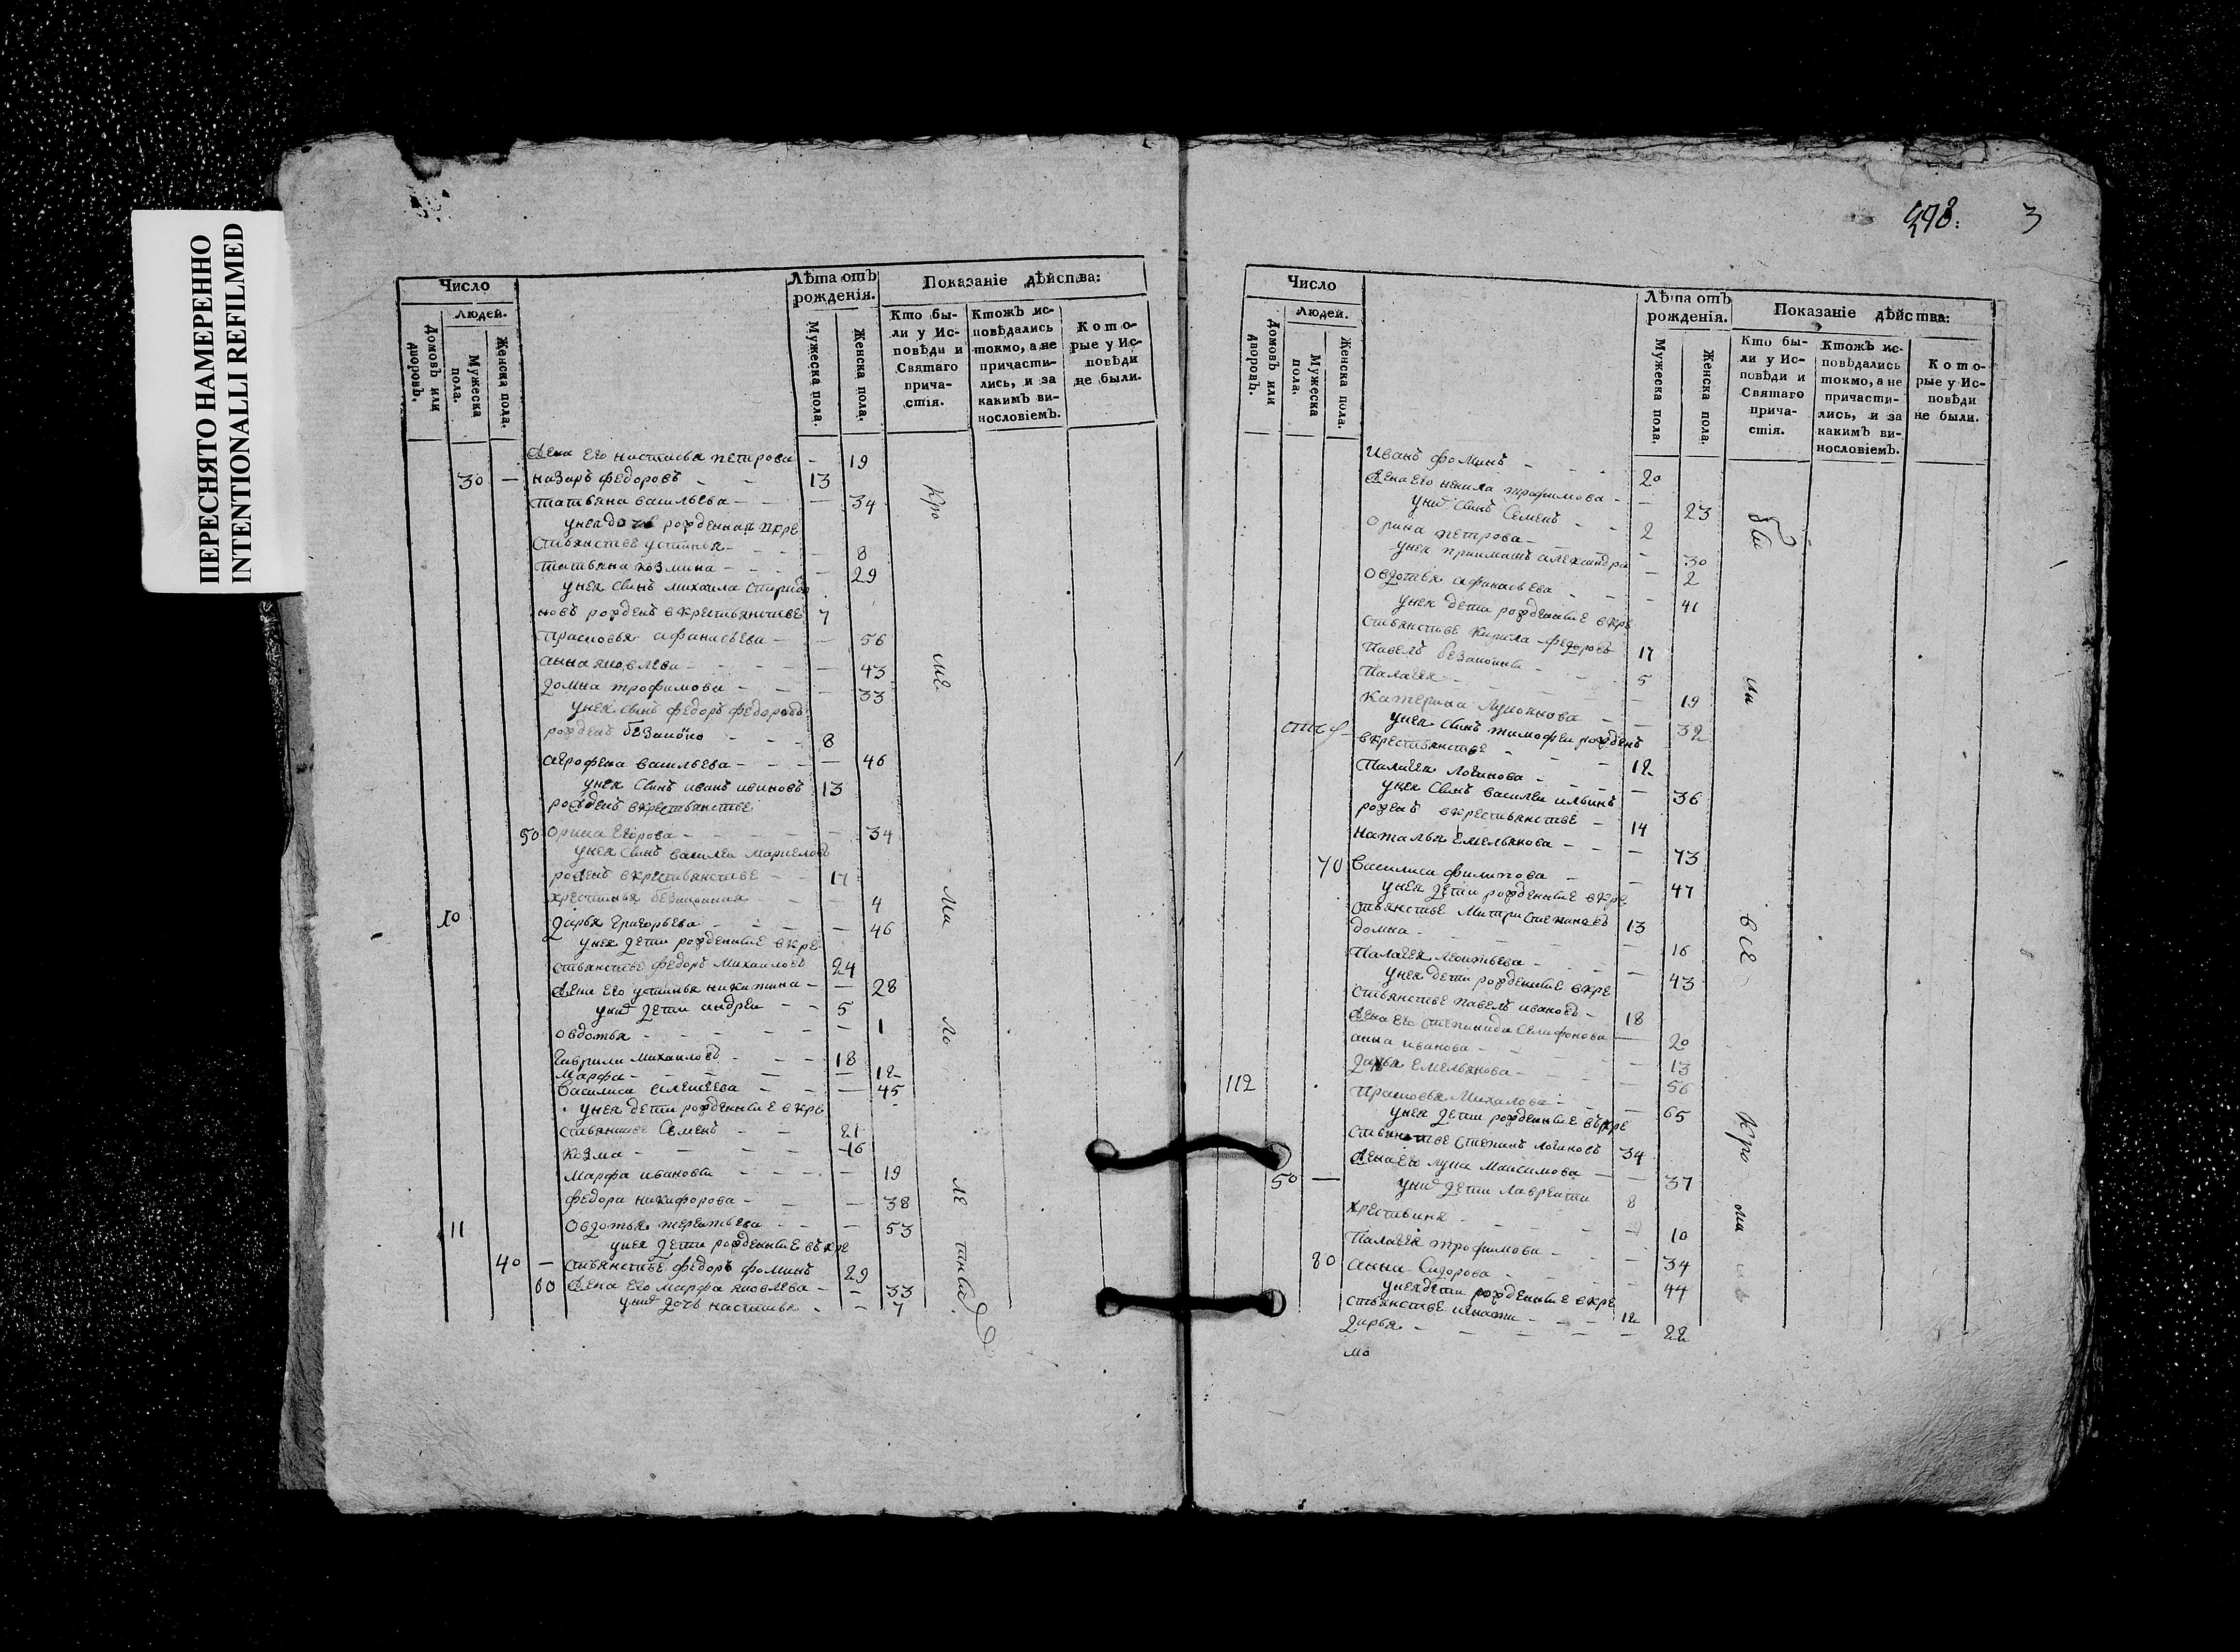 ПЕРЕСНЯТО НАМЕРЕННО
INTENTIONALLI REFILMED
Число
Людей.
Домовъ или дворовъ.
Мужеска пола.
Женска пола.
Лѣта отъ рожденія.
Мужеска пола.
Женска пола.
Показаніе дѣйства:
Кто бы-
ли у Ис-
повѣди и
Святаго
прича-
стія.
Ктожъ ис-
повѣдались
токмо, а не
причасти-
лись, и за
какимъ ви-
нословіемъ.
Кото-
рые у Ис-
повѣди
не были.
Жена его настасья петрова — 19
30 — назаръ федоровъ — 13
татьяна васильева — 34
унея дочь рожденная вкре
стьянстве устинья — 8
татьяна козмина — 29
унея сынъ михаила спиридо
новъ рожденъ вкрестьянстве 7
прасковья афанасьева — 56
анна яковлева — 43
домна трофимова — 33
унея сынъ федоръ федоровъ
рожденъ беззаконно — 8
агрофена васильева — 46
унея сынъ иванъ ивановъ 13
рожденъ вкрестьянстве
50 орина егорова — 34
унея сынъ василеи
рожденъ вкрестьянстве — 17
хрестинья беззаконная — 4
10 дарья григорьева — 46
унея дети рожденные вкре
стьянстве федоръ михаиловъ 24
жена его устинья никитина — 28
унихъ дети андреи — 5
овдотья — 1
гаврила михаиловъ — 18
марфа — 12
василиса алексеева — 45
унея дети рожденные вкре
стьянстве семенъ — 21
козма — 16
марфа иванова — 19
федора никифорова — 38
11 овдотья терентьева — 53
унея дети рожденные въкре
40 — стьянстве федоръ фоминъ 29
60 жена его марфа яковлева — 33
унихъ дочь настасья — 7
498: 3
Число
Людей.
Домовъ или дворовъ.
Мужеска пола.
Женска пола.
Лѣта отъ рожденія.
Мужеска пола.
Женска пола.
Показаніе дѣйства:
Кто бы-
ли у Ис-
повѣди и
Святаго
прича-
стія.
Ктожъ ис-
повѣдались
токмо, а не
причасти-
лись, и за
какимъ ви-
нословіемъ.
Кото-
рые у Ис-
повѣди
не были.
Иванъ фоминъ — 20
жена его ненила трофимова — 23
унихъ сынъ семенъ — 2
орина петрова — 30
унея александра — 2
овдотья афанасьева — 41
унея дети рожденные вкре
стьянстве кирила федоровъ 17
павелъ беззаконны — 5
палагея — 19
катерина лукьянова — 32
унея сынъ тимофеи рожденъ
вкрестьянстве — 12
палагея логинова — 36
унея сынъ василеи ильинъ
рожденъ вкрестьянстве — 14
наталья емельянова — 73
70 василиса филипова — 47
унея дети рожденные вкре
стьянстве митри степановъ 13
домна — 16
палагея леонтьева — 43
унея дети рожденные вкре
стьянстве павелъ ивановъ — 18
жена его степанида 20
анна иванова — 13
дарья емельянова — 56
112 прасковья михаилова — 65
унея дети рожденные въкре
стьянстве степанъ логиновъ 34
50 — жена его максимова — 37
унихъ дети лаврентеи 8
хрестинья — 10
палагея трофимова — 34
80 анна сидорова — 44
унея дети рожденные вкре
стьянстве игнати — 12
дарья — 22